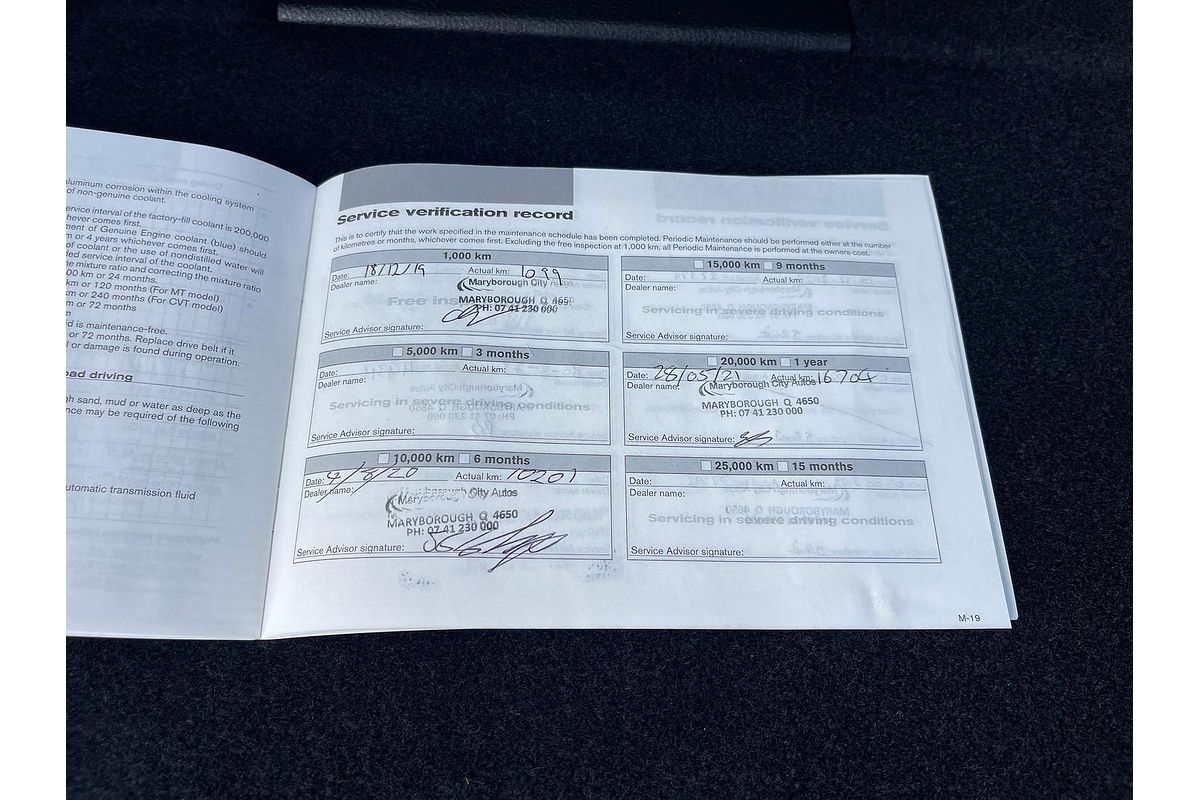 aluminum corrosion within the cooling system
of non-genuine coolant.
ervice interval of the factory-fill coolant is 200,000
hever comes first.
ment of Genuine Engine coolant (blue) should
m or 4 years whichever comes first.
of coolant or the use of nondistilled water will
ded service interval of the coolant.
he mixture ratio and correcting the mixture ratio
00 km or 24 months.
km or 120 months (For MT model)
m or 240 months (For CVT model)
m or 72 months
m
d is maintenance-free.
or 72 months. Replace drive belt if it
l or damage is found during operation.
oad driving
gh sand, mud or water as deep as the
nce may be required of the following
utomatic transmission fluid
Service verification record
This is to certify that the work specified in the maintenance schedule has been completed. Periodic Maintenance should be performed either at the number
of kilometres or months, whichever comes first. Excluding the free inspection at 1,000 km, all Periodic Maintenance is performed at the owners cost.
1,000 km
Date: 18/12/19 Actual km: 1099
Dealer name: Maryborough City
Free ins
MARYBOROUGH Q 4650
PH: 07 41 230 000
Service Advisor signature:
5,000 km 3 months
Date: Actual km:
Dealer name:
Servicing in severe driving conditions
Service Advisor signature:
10,000 km 6 months
Date: 9/3/20 Actual km: 10201
Dealer name: Maryborough City Autos
MARYBOROUGH Q 4650
PH: 07 41 230 000
Service Advisor signature:
15,000 km 9 months
Date: Actual km:
Dealer name:
Servicing in severe driving conditions
Service Advisor signature:
20,000 km 1 year
Date: 28/05/21 Actual km: 16704
Dealer name: Maryborough City Autos
MARYBOROUGH Q 4650
PH: 07 41 230 000
Service Advisor signature:
25,000 km 15 months
Date: Actual km:
Dealer name:
Servicing in severe driving conditions
Service Advisor signature:
M-19